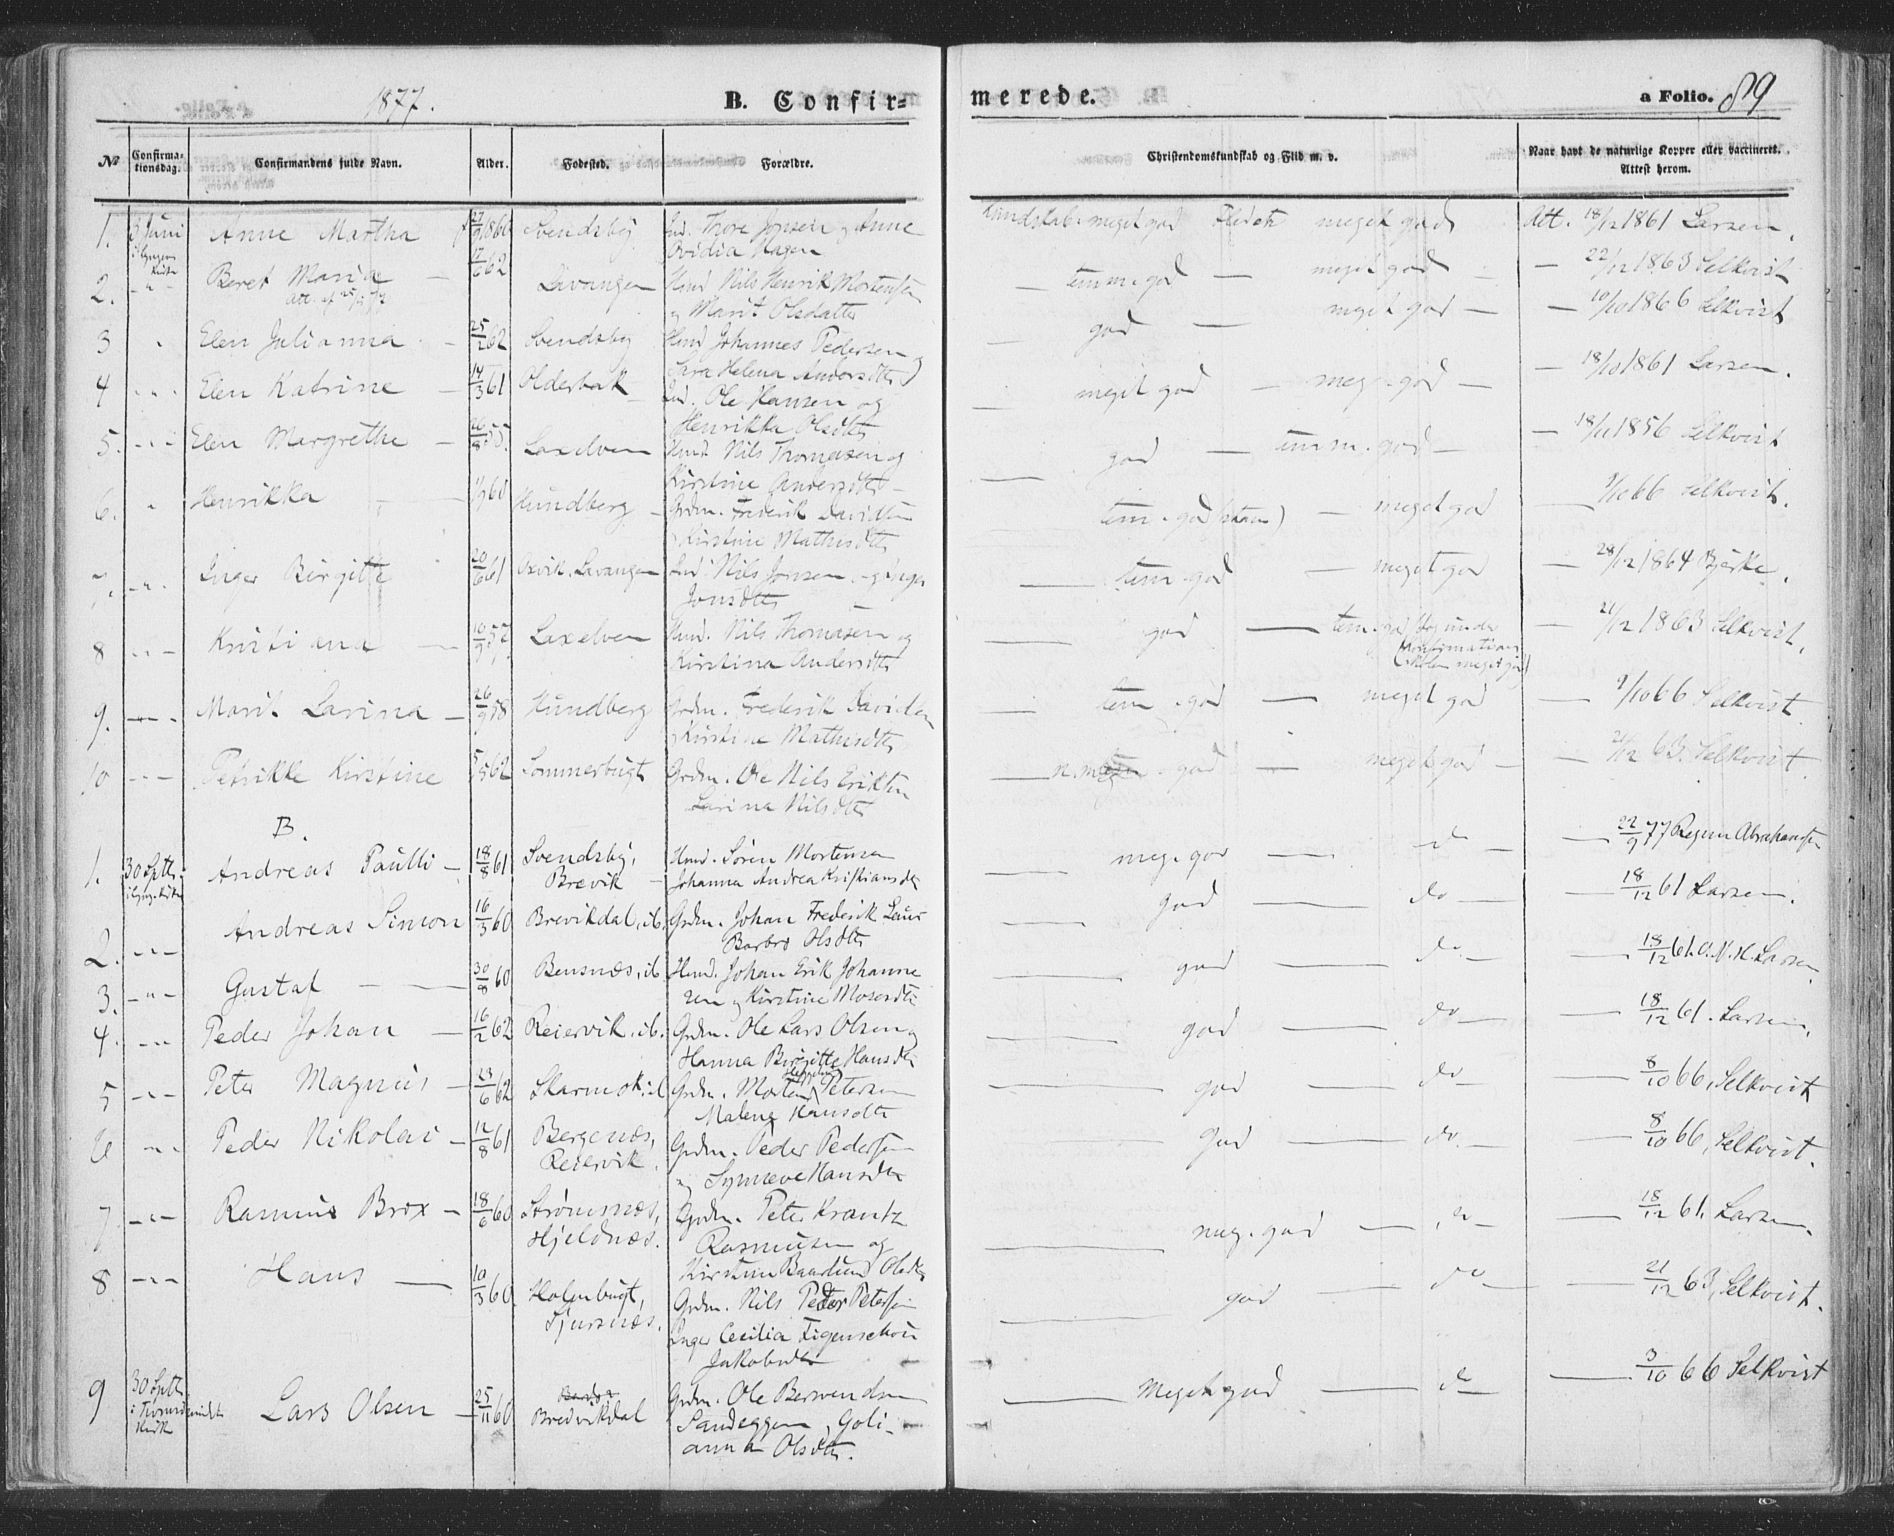 1877.
B. Confir=
merede.
a Folio. 89
No
Confirma-
tionsdag.
Confirmandens fulde Navn.
Alder.
Fødested.
Forældre.
Christendomskundskab og Flid m. v.
Naar havt de naturlige Kopper eller vaccineret.
Attest herom.
1. 3 Juni Anne Martha 27/9 1860 Svendsby Ind. Thore Jonsen og Anne
Ovidia Hagen
Kundskab meget god Flid etc meget god Att. 18/12 1861 Larsen.
2. Beret Marie 62 Lavangen Hmd Nils Henrik Mortensen
og Marit Olsdatter
temm. god — meget god — 22/12 1863 Selkvist
3 Elen Julianna 25/2 62 Svendsby Hmd Johannes Pedersen og
Sara Helena Andersdtr
god — meget god — 10/10 1866 Selkvist
4 Elen Katrine 14/3 61 Olderbak Ind. Ole Hansen og
Henrikka Olsdtr
meget god — meg. god — 18/10 1861 Larsen.
5. Elen Margrethe 26/8 55. Laxelven Hmd. Nils Thomasen og
Kirstine Andersdtr
god — temm. god — 18/11 1856 Selkvist
6. Henrikka 60 Hundberg Grdm. Frederik Davidsen
Kirstine Mathisdtr
tem. god — meget god 9/10 66 Selkvist.
7. Inger Birgitte 20/6 61 Oxvik, Lavangen Ind. Nils Jonsen og Inger
Jonsdtr
tem. god — meget god — 28/12 1864 Bjerke.
8 Kristiana 10/9 57 Laxelven Hmd. Nils Thomasen og
Kirstina Andersdtr
god — tem. god
Konfirmations
skolen meget god
— 21/12 1863 Selkvist.
9. Marit Larina 26/9 58 Hundberg Grdm. Frederik Davidsen
Kirstine Mathisdtr
tem. god — meget god — 9/10 66 Selkvist.
10 Petrikke Kirstine 5/5 62 Sommerbugt Grdm. Ole Nils Eriksen
Larina Nilsdtr
god — meget god — 21/12 63. Selkvist.
B.
1. 30 Septb. Andreas Paulli 18/8 61 Svendsby, Hmd. Søren Mortensen
Brevik Johanna Andrea Kristiansdtr
meg. god — do — 22/9 77 Regine Abrahamsen
2. Andreas Simon 16/3 60 Brevikdal, ib. Grdm. Johan Frederik Laur
Barbro Olsdtr
god — do — 18/12 61 Larsen.
3. Gustaf 30/8 60 Bensnæs, ib Hmd. Johan Erik Johanne
sen og Kirstine Mosesdtr
god — do — 18/12 61. O. N. K. Larsen
4. Peder Johan 16/2 62 Reiervik, ib. Grdm. Ole Lars Olsen og
Hanna Birgitte Hansdtr
god — do — 18/12 61. Larsen.
5 Peter Magnus 23/6 62 Skarmok, ib Grdm. Morten Petersen
Malene Hansdtr
god — do — 8/10 66, Selkvist
6 Peder Nikolai 12/8 61 Bergenæs, Grdm. Peder Pedersen
Reiervik. og Synneve Hansdtr
god — do — 8/10 66, Selkvist.
7 Rasmus Brox 18/6 60 Strømsnæs, Grdm. Peter Krantz
Hjeldnæs. Rasmusen og
Kirstine Baardsen Olsdtr
meg. god — do — 18/12 61. Larsen.
8. Hans 10/3 60 Holmbugt, Grdm. Nils Peder Petersen
Sjursnæs. Inger Cecilia Figenschou
Jakobsdtr
god — do — 21/12 63, Selkvist.
9 30 Septb. Lars Olsen 25/11 60 Bredvikdal Grdm. Ole Berwendsen
Sandeggen, Goli-
anna Olsdtr.
Meget god — do — 3/10 66 Selkvist